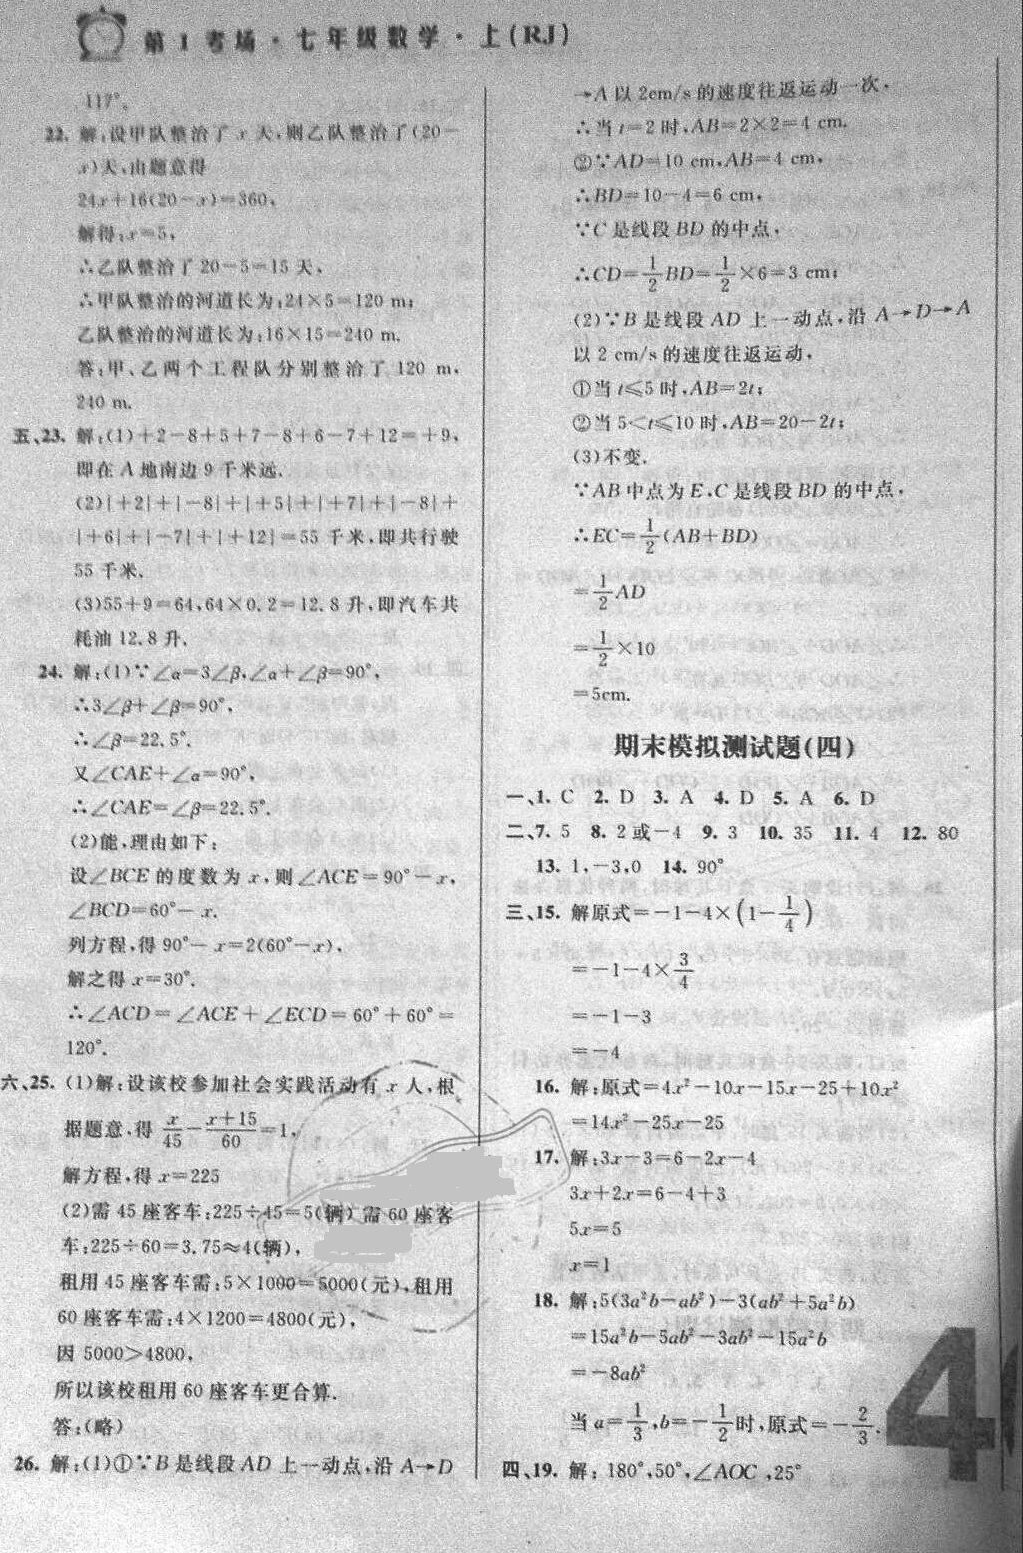 第1考场·七年级数学·上(RJ)
117°.
22. 解:设甲队整治了 x 天,则乙队整治了(20-
x)天,由题意得
24x+16(20-x)=360,
解得:x=5,
∴乙队整治了 20-5=15 天,
∴甲队整治的河道长为:24×5=120 m;
乙队整治的河道长为:16×15=240 m.
答:甲、乙两个工程队分别整治了 120 m,
240 m.
五、23. 解:(1)+2-8+5+7-8+6-7+12=+9,
即在 A 地南边 9 千米远.
(2)|+2|+|-8|+|+5|+|+7|+|-8|+
|+6|+|-7|+|+12|=55 千米,即共行驶
55 千米.
(3)55+9=64,64×0.2=12.8 升,即汽车共
耗油 12.8 升.
24. 解:(1)∵∠α=3∠β,∠α+∠β=90°,
∴3∠β+∠β=90°,
∴∠β=22.5°.
又∠CAE+∠α=90°,
∴∠CAE=∠β=22.5°.
(2)能,理由如下:
设∠BCE 的度数为 x,则∠ACE=90°-x,
∠BCD=60°-x.
列方程,得 90°-x=2(60°-x),
解之得 x=30°.
∴∠ACD=∠ACE+∠ECD=60°+60°=
120°.
六、25. (1)解:设该校参加社会实践活动有 x 人,根
据题意,得 x/45-(x+15)/60=1,
解方程,得 x=225
(2)需 45 座客车:225÷45=5(辆) 需 60 座客
车:225÷60=3.75≈4(辆),
租用 45 座客车需:5×1000=5000(元),租用
60 座客车需:4×1200=4800(元),
因 5000>4800,
所以该校租用 60 座客车更合算.
答:(略)
26. 解:(1)①∵B 是线段 AD 上一动点,沿 A→D
→A 以 2cm/s 的速度往返运动一次,
∴当 t=2 时,AB=2×2=4 cm.
②∵AD=10 cm,AB=4 cm,
∴BD=10-4=6 cm,
∵C 是线段 BD 的中点,
∴CD=1/2BD=1/2×6=3 cm;
(2)∵B 是线段 AD 上一动点,沿 A→D→A
以 2 cm/s 的速度往返运动,
①当 t≤5 时,AB=2t;
②当 5<t≤10 时,AB=20-2t;
(3)不变.
∵AB 中点为 E,C 是线段 BD 的中点,
∴EC=1/2(AB+BD)
=1/2AD
=1/2×10
=5cm.
期末模拟测试题(四)
一、1. C 2. D 3. A 4. D 5. A 6. D
二、7. 5 8. 2 或-4 9. 3 10. 35 11. 4 12. 80
13. 1,-3,0 14. 90°
三、15. 解原式=-1-4×(1-1/4)
=-1-4×3/4
=-1-3
=-4
16. 解:原式=4x²-10x-15x-25+10x²
=14x²-25x-25
17. 解:3x-3=6-2x-4
3x+2x=6-4+3
5x=5
x=1
18. 解:5(3a²b-ab²)-3(ab²+5a²b)
=15a²b-5ab²-3ab²-15a²b
=-8ab²
当 a=1/3,b=-1/2时,原式=-2/3.
四、19. 解: 180°,50°,∠AOC ,25°
4